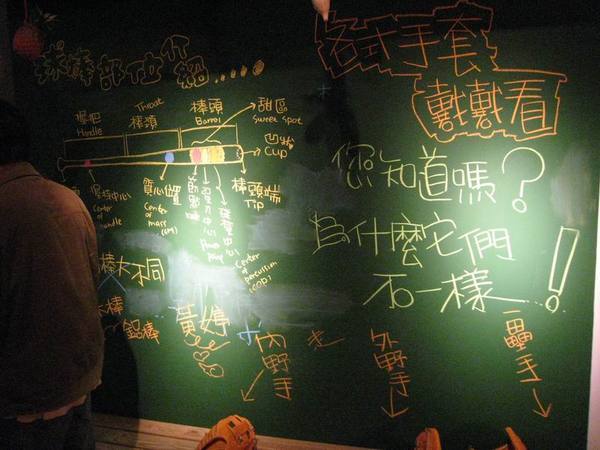 球棒部位介紹......
握把
Handle
Throat
棒頸
棒頭
Barrel
甜區
Sweet spot
凹槽
Cup
棒頭端
Tip
Center of handle
質心位置
Center of mass (cm)
Center of percussion (COP)
棒大不同
鋁棒
黃婷
各式手套
戴戴看
您知道嗎?
為什麼它們
不一樣!
內野手
外野手
一壘手